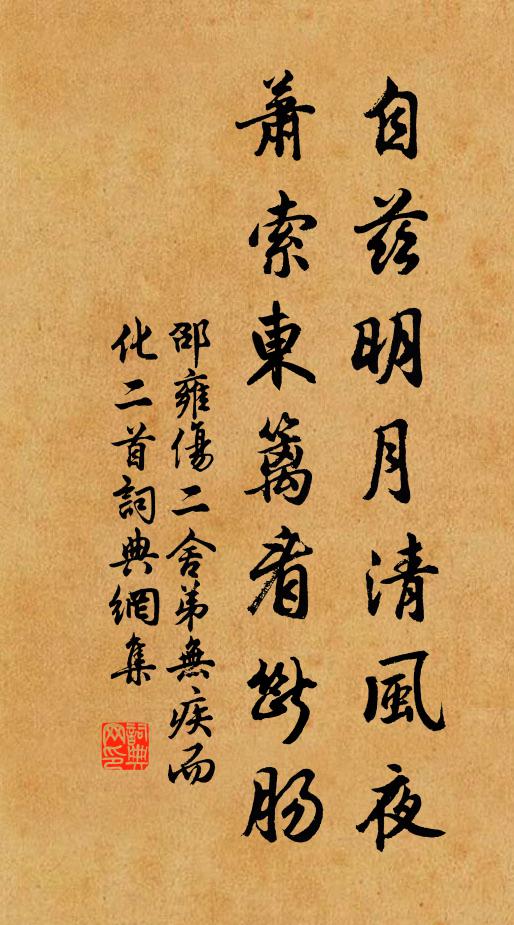 自茲明月清風夜
蕭索東籬看斷腸
邵雍傷二舍弟無疾而
化二首詞典網集
詞典網印